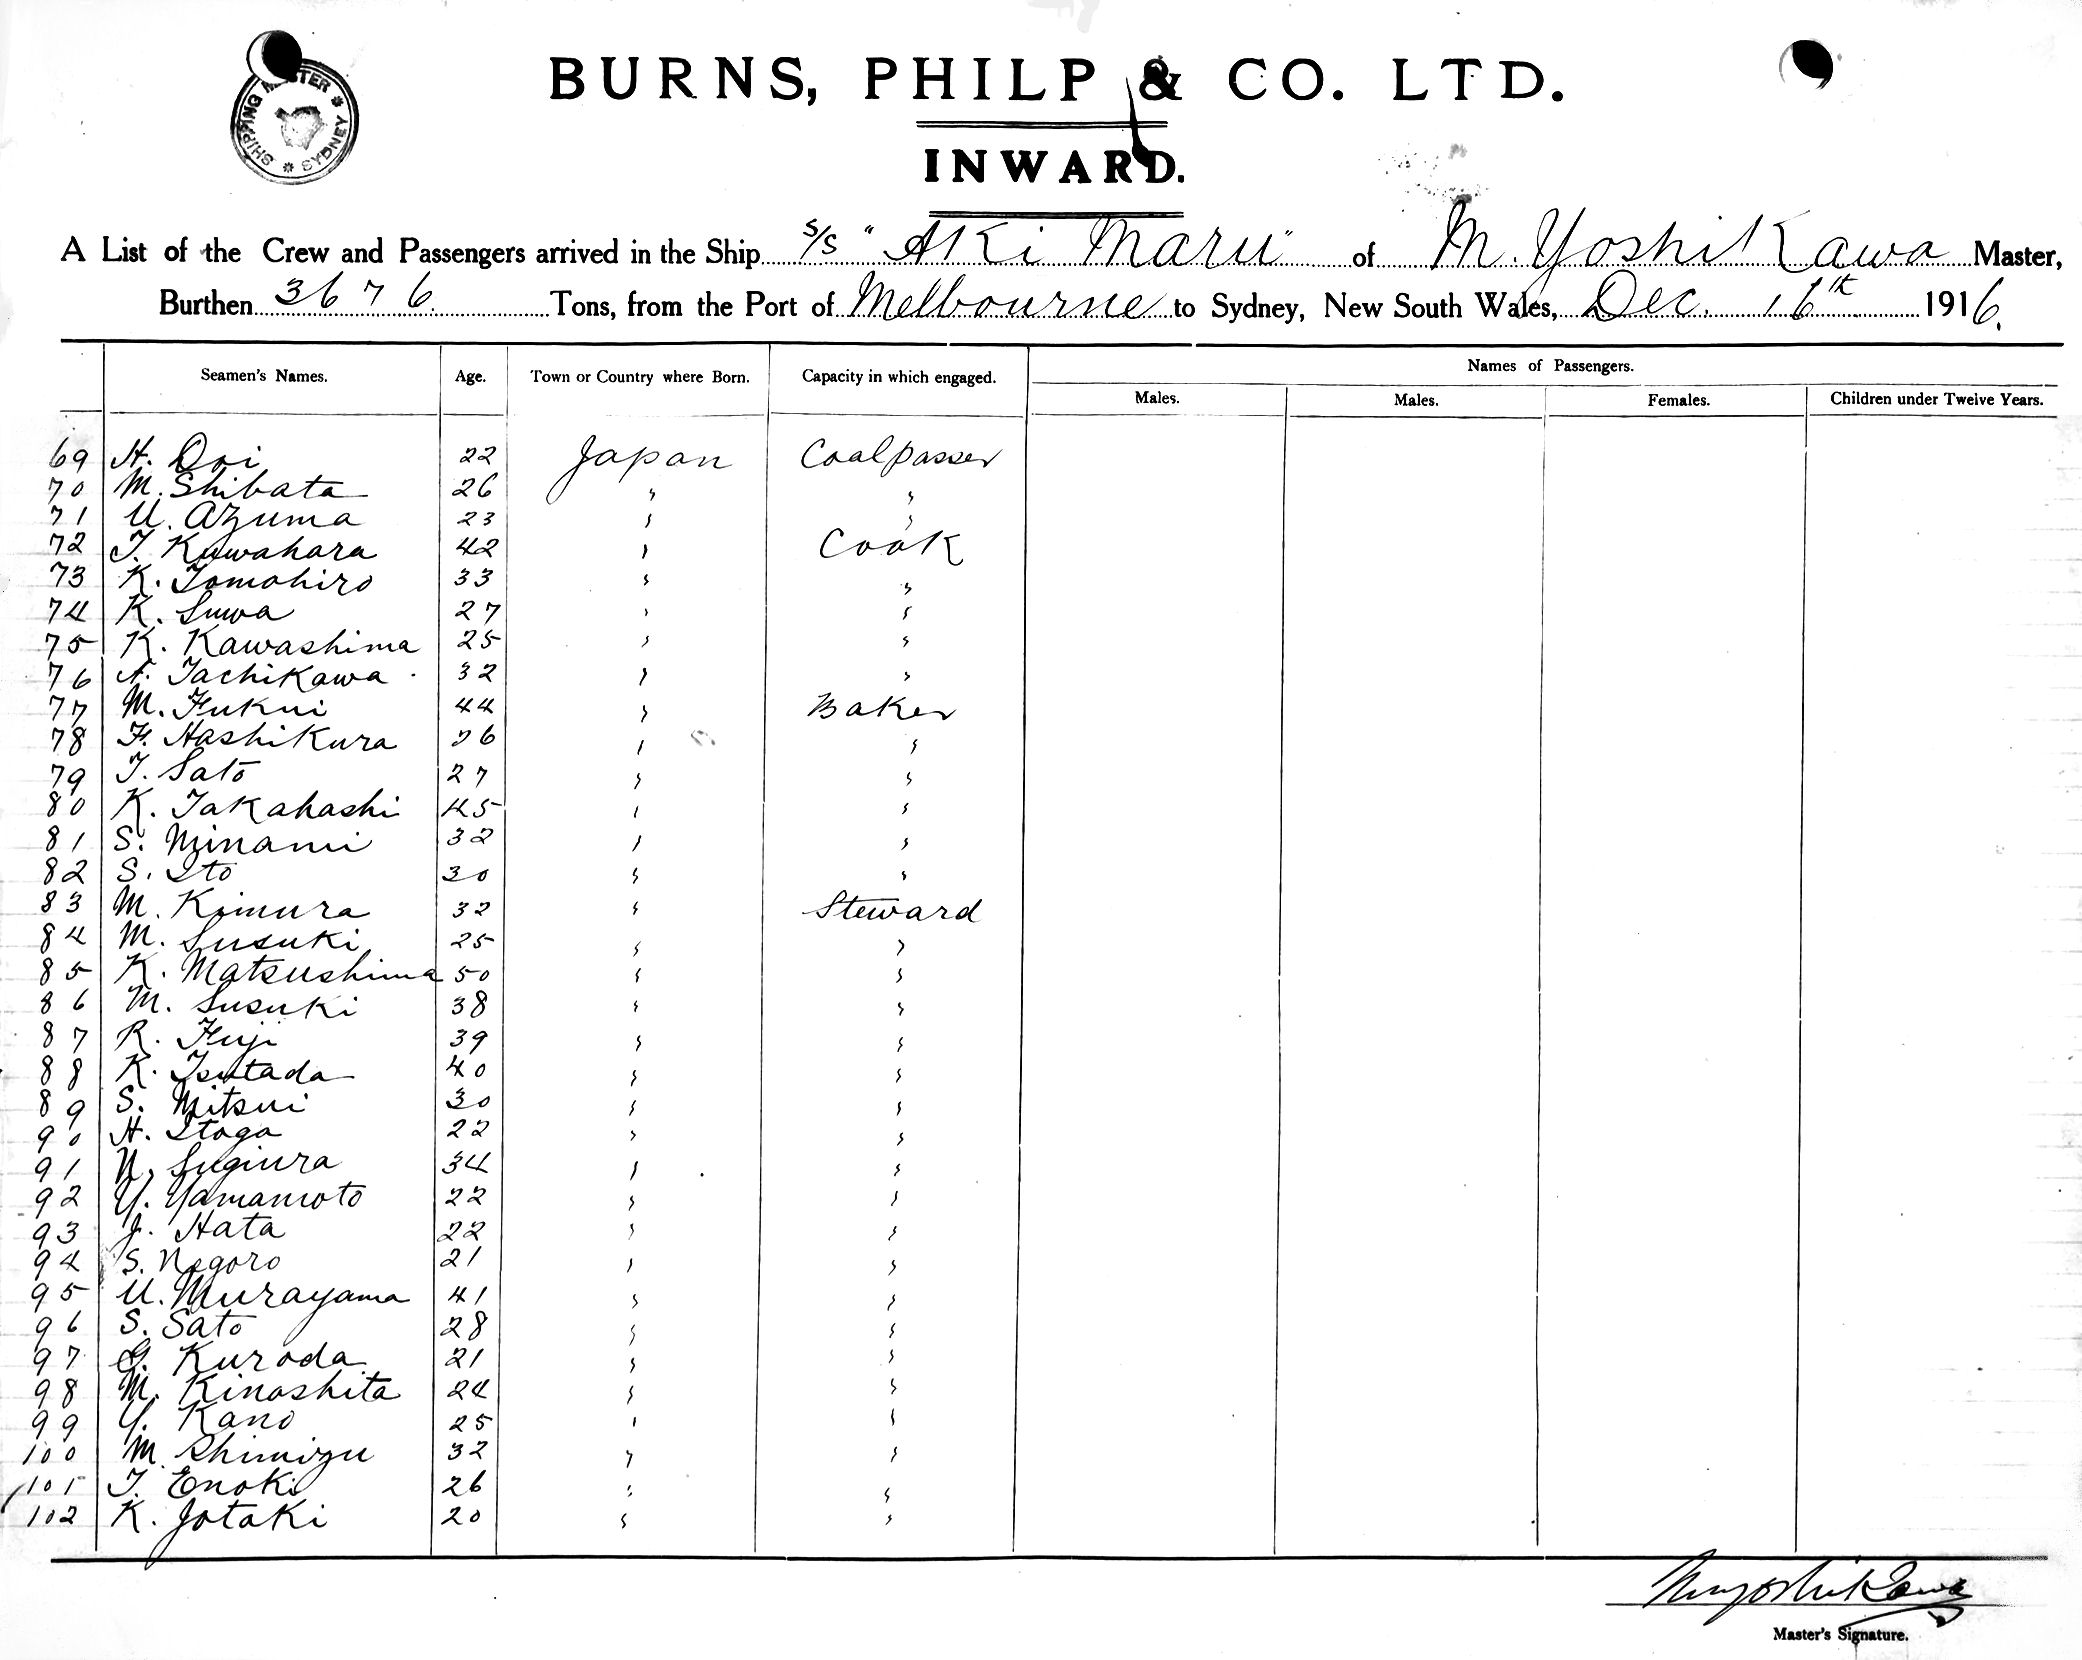 SHIPPING MASTER * SYDNEY *
BURNS, PHILP & CO. LTD.
INWARD.
A List of the Crew and Passengers arrived in the Ship S/S "Aki Maru" of M. Yoshikawa Master,
Burthen 3676 Tons, from the Port of Melbourne to Sydney, New South Wales, Dec. 16th 1916.
Seamen's Names. Age. Town or Country where Born. Capacity in which engaged. Names of Passengers.
Males. Males. Females. Children under Twelve Years.
69 H. Doi 22 Japan Coalpasser
70 M. Shibata 26 " "
71 U. Azuma 23 " "
72 T. Kuwahara 42 " Cook
73 K. Tomohiro 33 " "
74 K. Suwa 27 " "
75 K. Kawashima 25 " "
76 Tachikawa 32 " "
77 M. Fukui 44 " Baker
78 F. Hashikura 26 " "
79 T. Sato 27 " "
80 K. Takahashi 45 " "
81 S. Minami 32 " "
82 S. Ito 30 " "
83 M. Kimura 32 " Steward
84 M. Susuki 25 " "
85 K. Matsushima 50 " "
86 M. Susuki 38 " "
87 R. Fuji 39 " "
88 K. Tsutada 40 " "
89 S. Mitsui 30 " "
90 H. Itoga 22 " "
91 N. Sugiura 34 " "
92 Y. Yamamoto 22 " "
93 J. Hata 22 " "
94 S. Negoro 21 " "
95 U. Murayama 41 " "
96 S. Sato 28 " "
97 G. Kuroda 21 " "
98 M. Kinoshita 24 " "
99 Y. Kano 25 " "
100 M. Shimizu 32 " "
101 T. Enoki 26 " "
102 K. Jotaki 20 " "
M. Yoshikawa
Master's Signature.